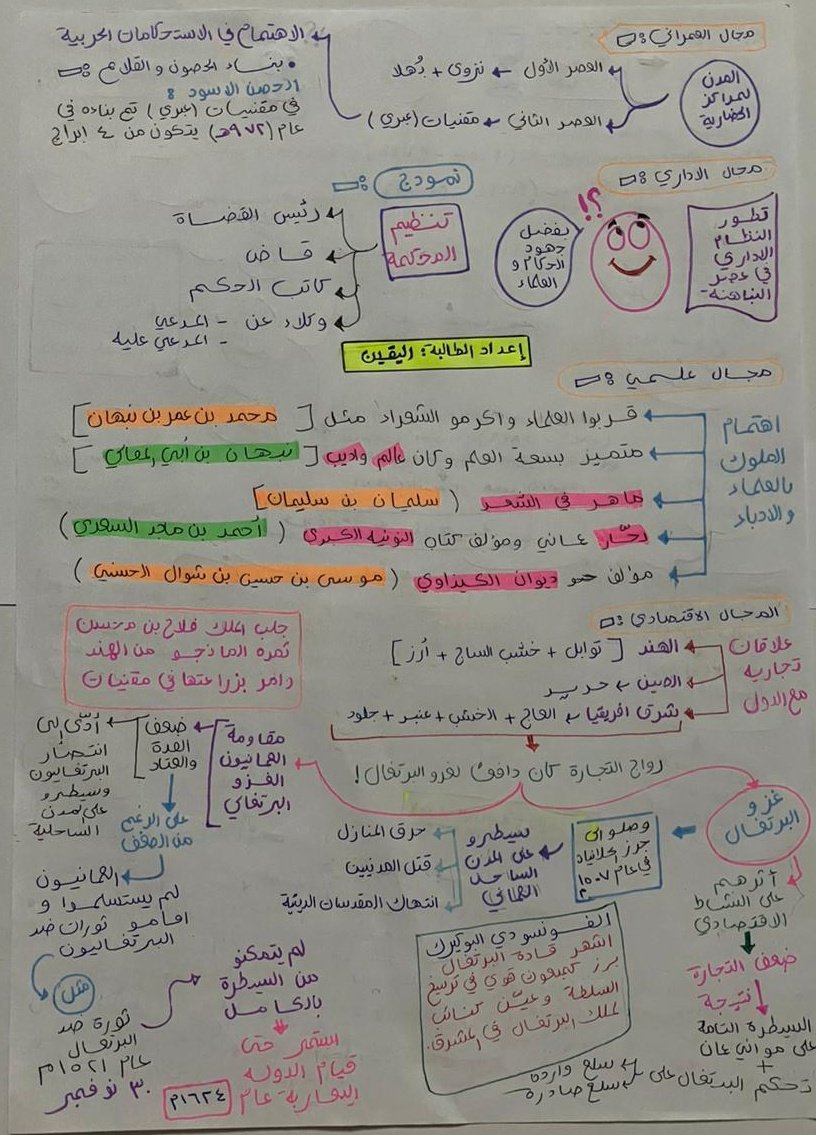 مجال العمراني:
المدن
المراكز
الحضارية
العصر الأول ← نزوى + بُهلا
العصر الثاني ← مقنيات (عبري)
الاهتمام في الاستحكامات الحربية
• بناء الحصون و القلاع:
الحصن الاسود:
في مقنيات (عبري) تم بناءه في
عام (٩٧٢هـ) يتكون من ٤ ابراج
مجال الاداري:
تطور
النظام
الاداري
في عصر
النباهنة
؟!
بفضل
جهود
الحكام و
العلماء
نموذج:
تنظيم
المحكمة
رئيس القضاة
قاض
كاتب الحكم
وكلاء عن - المدعي
- المدعي عليه
إعداد الطالبة: اليقين
مجال علمي:
اهتمام
الملوك
بالعلماء
و الادباء
قربوا العلماء واكرمو الشعراء مثل [محمد بن عمر بن نبهان]
متميز بسعة العلم وكان عالم واديب [نبهان بن أبي المعالي]
ماهر في الشعر (سليمان بن سليمان]
بحّار عماني ومؤلف كتاب النونيه الكبرى (أحمد بن ماجد السعدي)
مؤلف هو ديوان الكيذاوي (موسى بن حسين بن شوال الحسني)
المجال الاقتصادي:
علاقات
تجاريه
مع الدول
الهند [توابل + خشب الساج + أرز]
الصين ← حرير
شرق افريقيا ← العاج + الخشب + عنبر + جلود
جلب الملك فلاح بن محسن
ثمرة المانجو من الهند
وامر بزراعتها في مقنيات
رواج التجارة كان دافعًا لغزو البرتغال!
غزو
البرتغال
وصلو الى
جزر الحلانيات
في عام ١٥٠٧
م
سيطرو
على المدن
الساحل
العماني
حرق المنازل
قتل المدنيين
انتهاك المقدسات الدينية
مقاومة
العمانيون
الغزو
البرتغالي
ضعف
العدة
والعتاد
أدّى إلى
انتصار
البرتغاليون
وسيطرو
على المدن
الساحلية
على الرغم
من الضعف
العمانيون
لم يستسلموا و
اقامو ثورات ضد
البرتغاليون
مثل
ثورة ضد
البرتغال
عام ١٥٢١م
٣٠ نوفمبر
لم يتمكنو
من السيطرة
بالكامل
استمر حتى
قيام الدوله
اليعاربة عام ١٦٢٤م
الفونسو دي البوكيرك
اشهر قادة البرتغال
برز كمبعوث قوي في ترسيخ
السلطة وعيّن كنائب
لملك البرتغال في المشرق.
أثرهم
على النشاط
الاقتصادي
ضعف التجارة
نتيجة
السيطرة التامة
على مواني عمان
+
تحكم البرتغال على ← سلع واردة
سلع صادرة